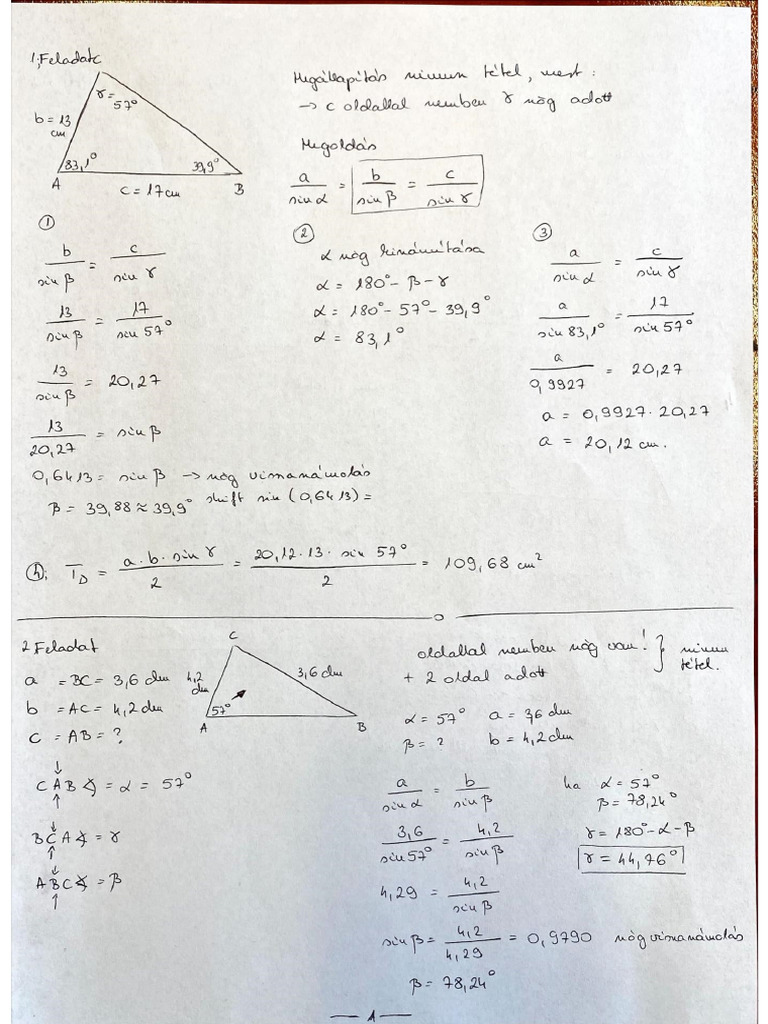 1, Feladat
C
γ = 57°
b = 13 cm
83,1°
39,9°
A
B
c = 17 cm
Megállapítás sinusz tétel, mert :
→ c oldallal szemben γ szög adott
Megoldás
a/sin α = b/sin β = c/sin γ
①
b/sin β = c/sin γ
13/sin β = 17/sin 57°
13/sin β = 20,27
13/20,27 = sin β
0,6413 = sin β → szög visszaszámolás
β = 39,88 ≈ 39,9° shift sin (0,6413) =
②
α szög kiszámítása
α = 180° - β - γ
α = 180° - 57° - 39,9°
α = 83,1°
③
a/sin α = c/sin γ
a/sin 83,1° = 17/sin 57°
a/0,9927 = 20,27
a = 0,9927 · 20,27
a = 20,12 cm.
④, T_Δ = a · b · sin γ/2 = 20,12 · 13 · sin 57°/2 = 109,68 cm²
2 Feladat
a = BC = 3,6 dm
b = AC = 4,2 dm
c = AB = ?
CAB∢ = α = 57°
BCA∢ = γ
ABC∢ = β
C
4,2 dm
3,6 dm
57°
A
B
oldallal szemben szög van!
+ 2 oldal adott
} sinusz tétel.
α = 57° a = 3,6 dm
β = ? b = 4,2 dm
a/sin α = b/sin β
3,6/sin 57° = 4,2/sin β
4,29 = 4,2/sin β
sin β = 4,2/4,29 = 0,9790 szög visszaszámolás
β = 78,24°
ha α = 57°
β = 78,24°
γ = 180° - α - β
γ = 44,76°
— 1 —